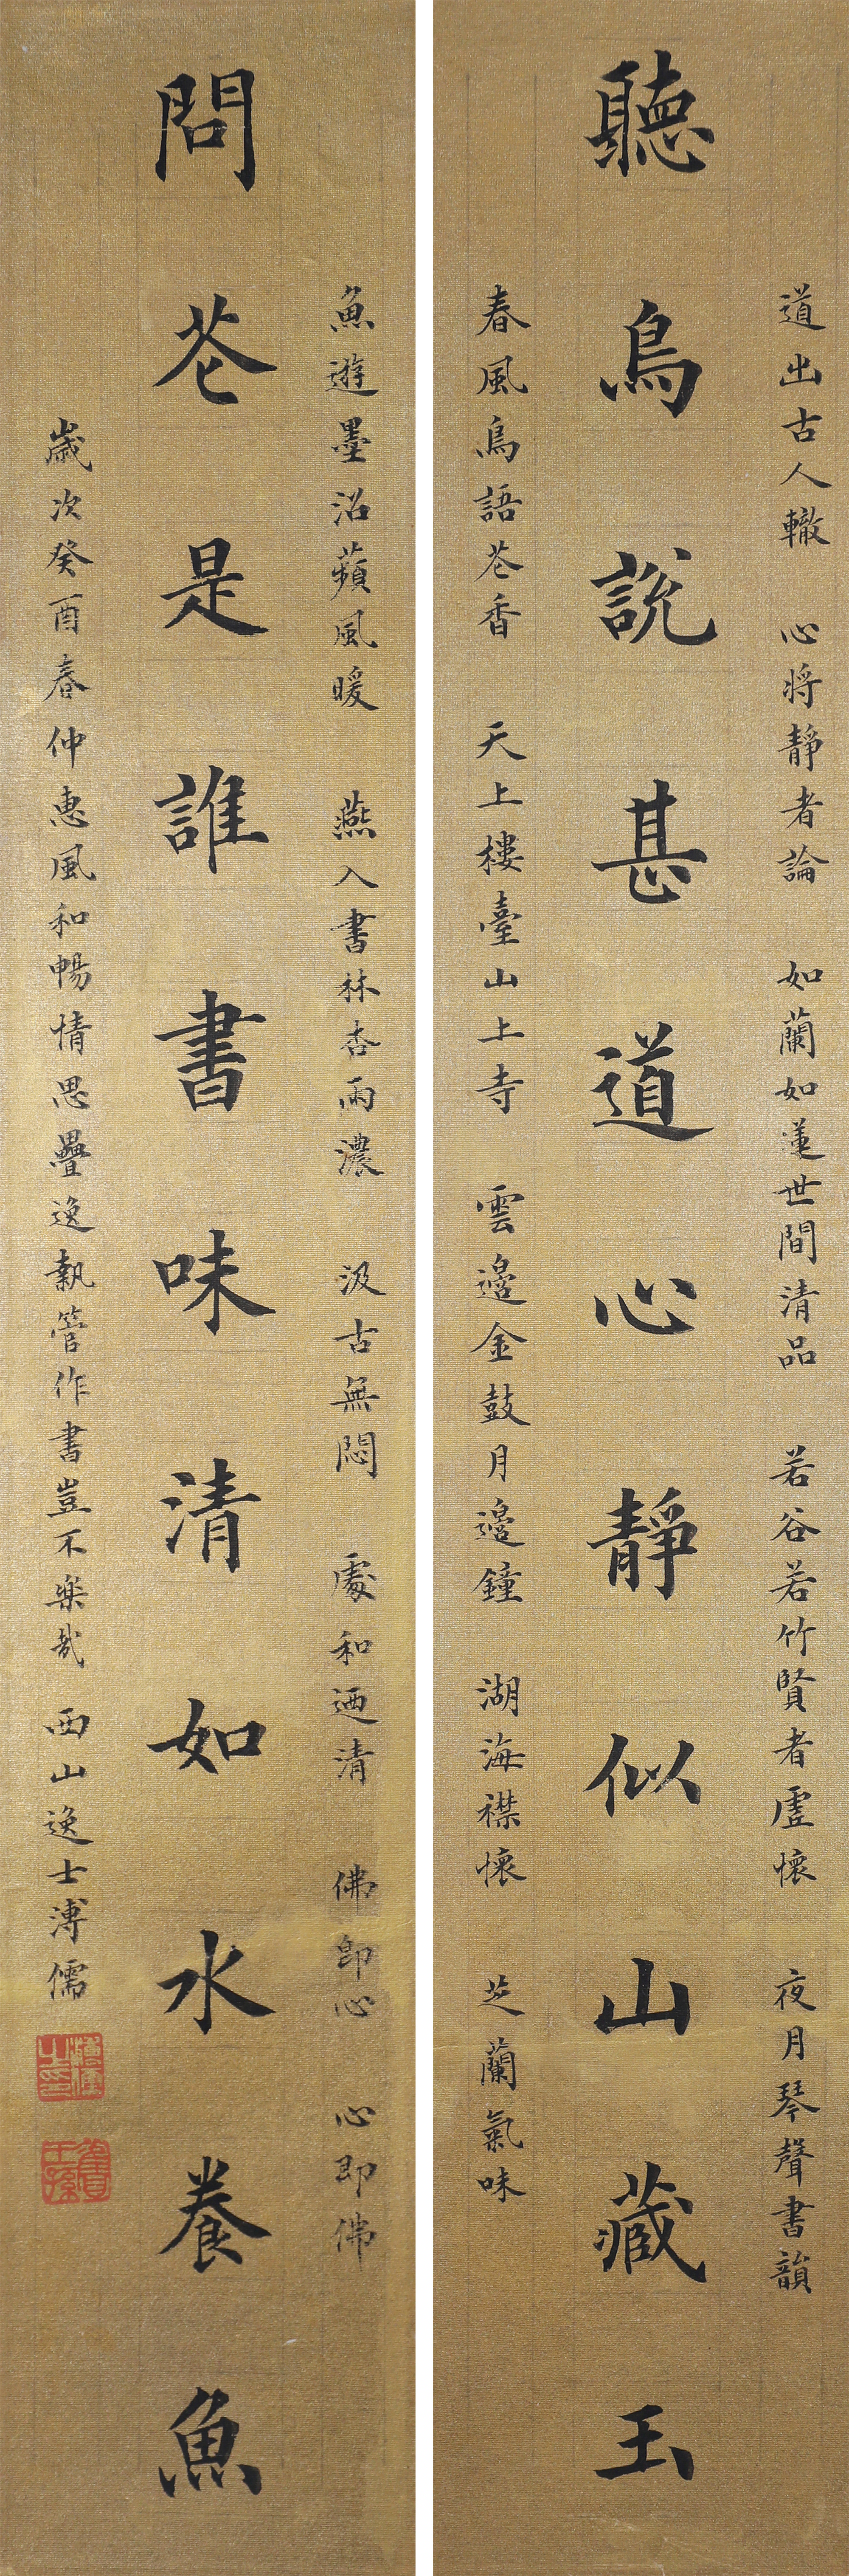 道出古人轍 心將靜者論 如蘭如蓮世間清品 若谷若竹賢者虛懷 夜月琴聲書韻
聽鳥說甚道心靜似山藏玉
春風鳥語花香 天上樓臺山上寺 雲邊金鼓月邊鐘 湖海襟懷 芝蘭氣味
魚遊墨沼蘋風暖 燕入書林杏雨濃 汲古無悶 處和迺清 佛即心 心即佛
問花是誰書味清如水養魚
歲次癸酉春仲惠風和暢情思疊逸執管作書豈不樂哉 西山逸士溥儒